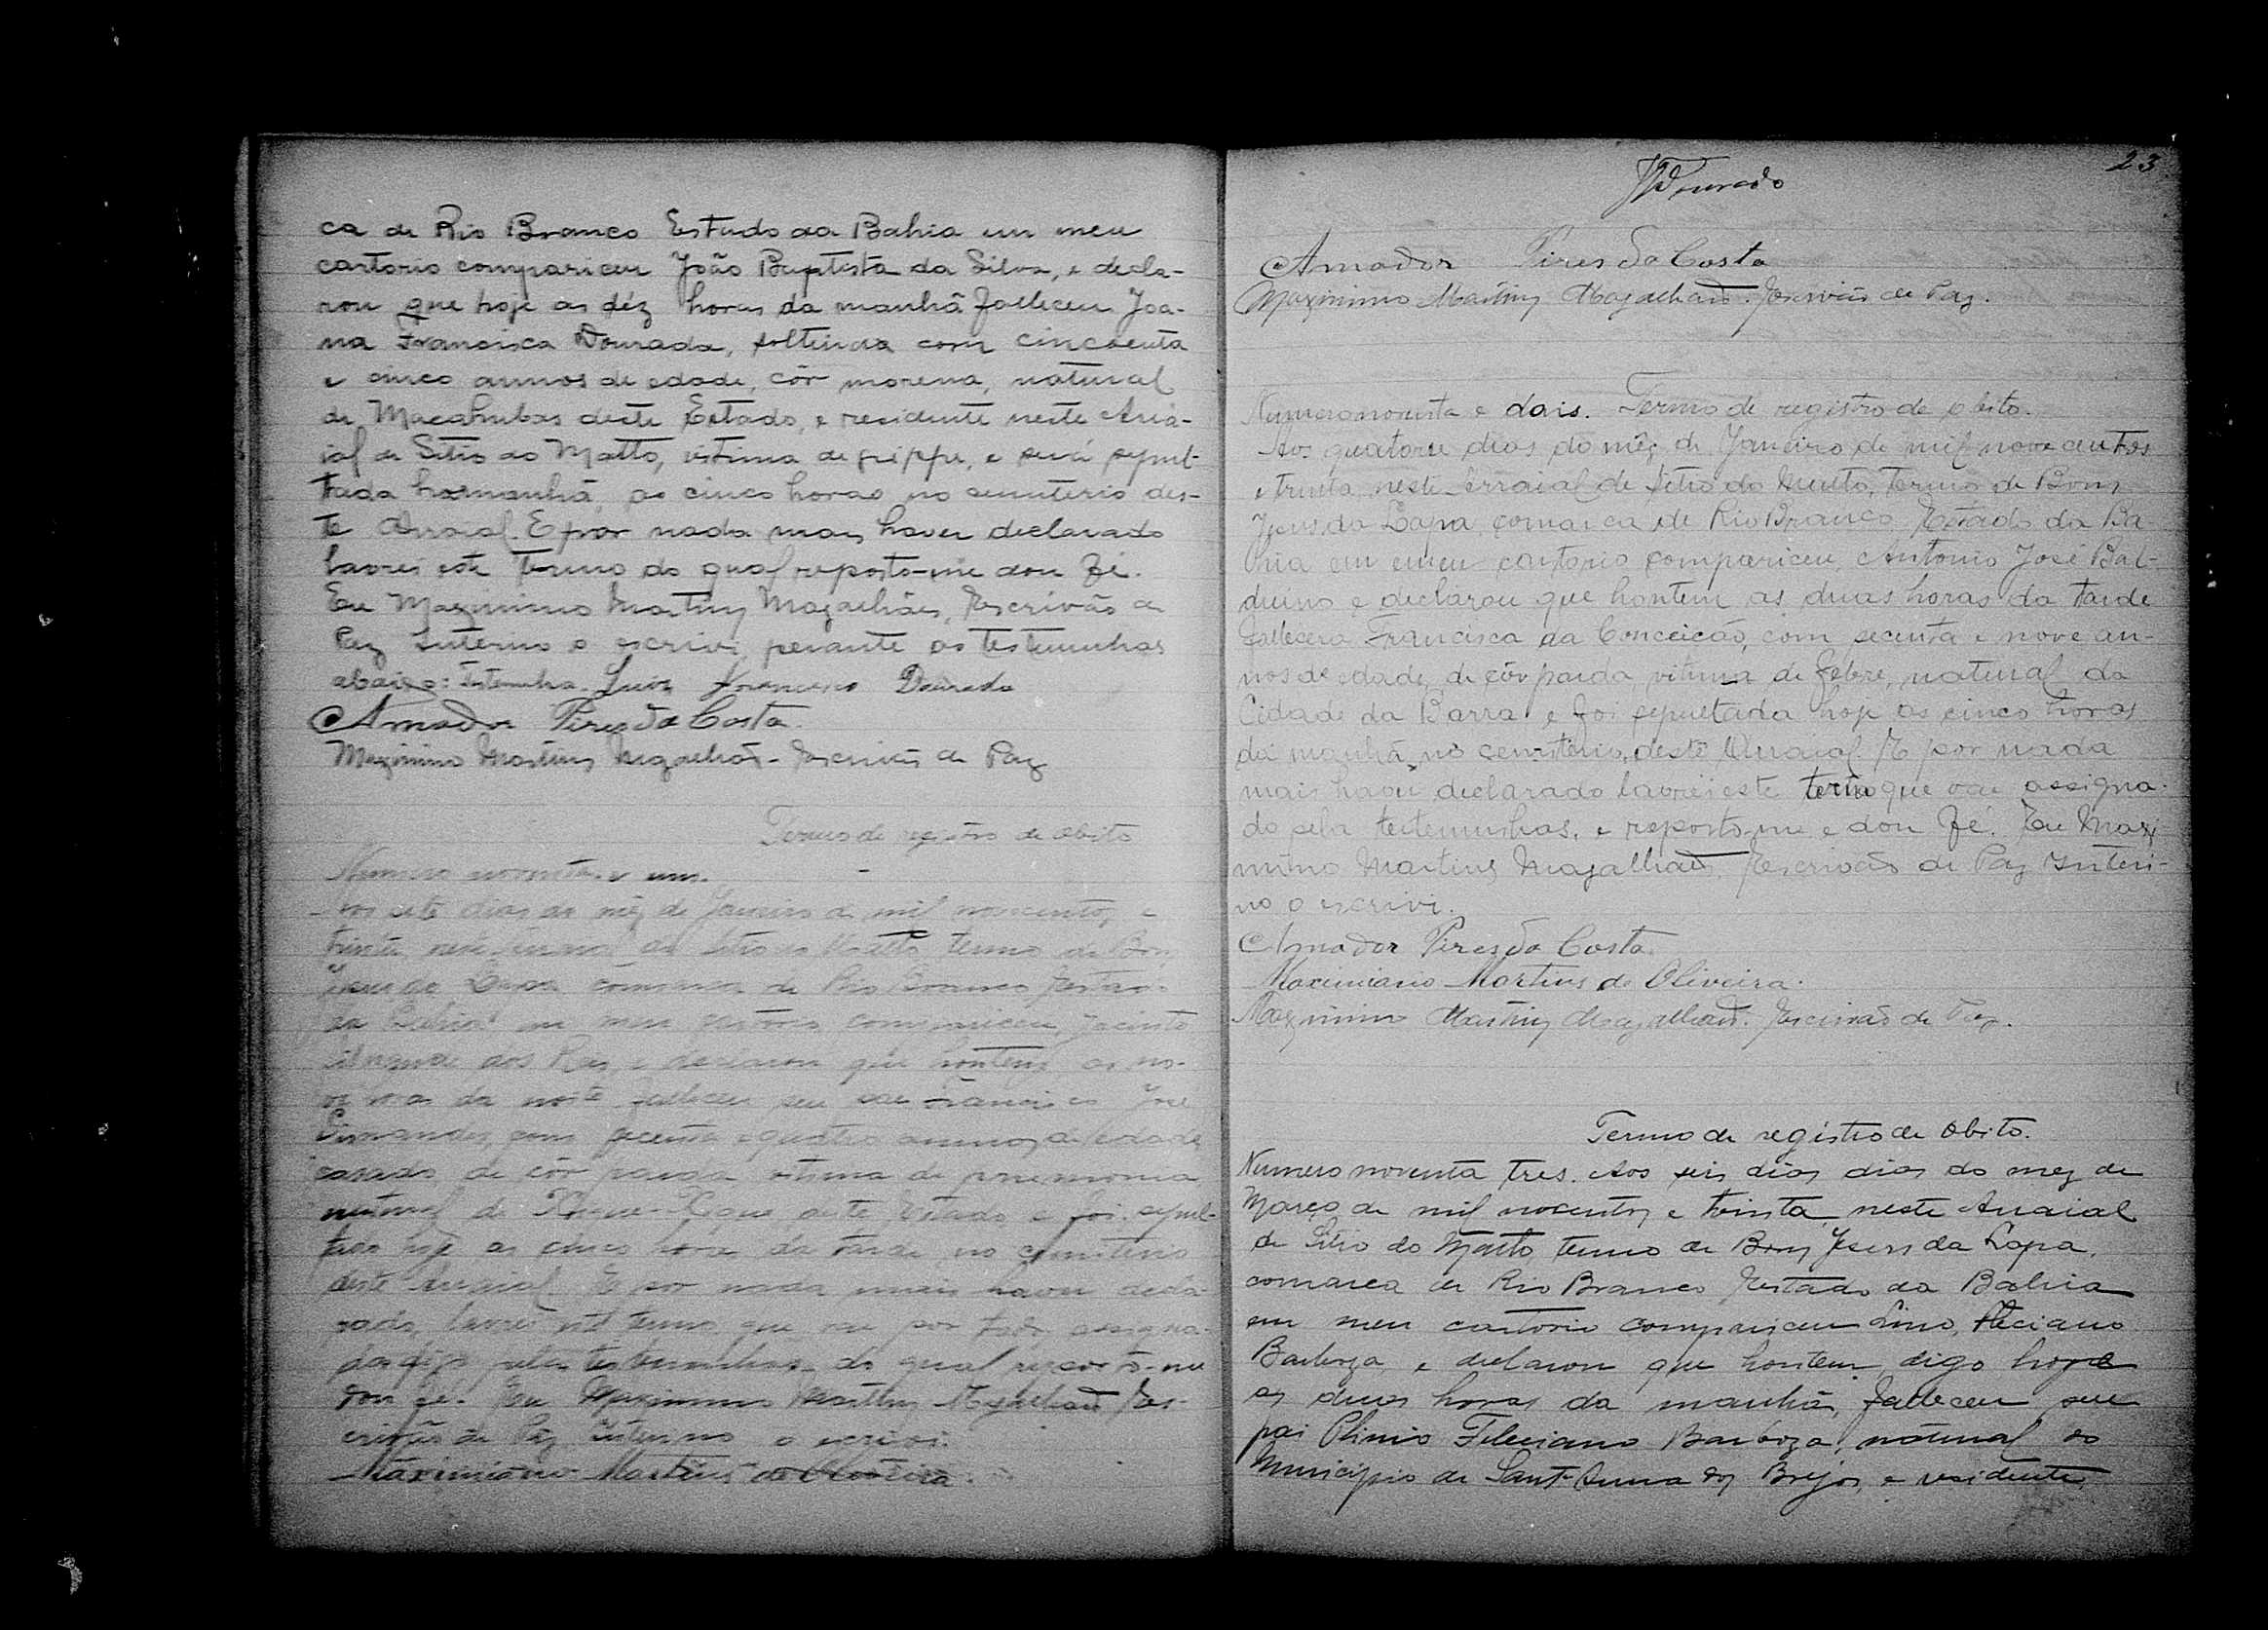 ca de Rio Branco Estado da Bahia em meu
cartorio compariceu João Baptista da Silva, e decla-
rou que hoje as déz horas da manhã falleceu Joa-
na Francisca Dourada, solteira com cincoenta
e cinco annos de edade, côr morena, natural
de Macahubas deste Estado, e residente neste Arra-
ial de Sitio do Matto, victima de grippe, e será sepul-
tada hamanhã, as cinco horas no cemiterio des-
te Arraial. E por nada mais haver declarado
lavrei este termo do qual reporto-me dou fé.
Eu Maximino Martins Magalhães, Escrivão de
Paz Interino o escrivi, perante as testemunhas
abaixo: Testemunha. Luiz Francisco Dourado
Amador Pires da Costa.
Maximino Martins Magalhães - Escrivão de Paz
Termo de registro de obito
Numero noventa e um.
Aos sete dias do mêz de Janeiro de mil novecentos e
trinta neste Arraial de Sitio do Matto termo de Bom
Jesus da Lapa comarca de Rio Branco Estado
da Bahia em meu cartorio compariceu, Jacinto
dos Reis e declarou que hontem as no-
ve horas da noite falleceu seu pae Francisco José
Fernandes, com secenta e quatro annos de edade
casado, de côr parda victima de pneumonia
natural de Xique-Xique deste Estado e foi sepul-
tado hoje as cinco hora da tarde no cemiterio
deste Arraial. E por nada mais haver decla-
rado, lavrei este termo que vae por assigna-
do digo pelas testemunhas do qual reporto-me
dou fé. Eu Maximino Martins Magalhães Es-
crivão de Paz interino o escrivi.
Maximiano Martins de Oliveira
23
Dourado
Amador Pires da Costa
Maximino Martins Magalhães. Escrivão de Paz.
Numero noventa e dois. Termo de registro de obito.
Aos quatorze dias do mêz de Janeiro de mil novecentos
e trinta, neste Arraial de Sitio do Matto, termo de Bom
Jesus da Lapa, comarca de Rio Branco Estado da Ba-
hia em meu cartorio compariceu, Antonio José Bal-
duino e declarou que hontem as duas horas da tarde
fallecera Francisca da Conceicão, com secenta e nove an-
nos de edade, de côr parda, vitima de febre, natural da
Cidade da Barra e foi sepultada hoje as cinco horas
da manhã no cemiterio, deste Arraial. E por nada
mais haver declarado lavrei este termo que vae assigna-
do pela testemunhas, e reporto-me e dou fé. Eu Maxi
mino Martins Magalhães, Escrivão de Paz Interi-
no o escrivi.
Amador Pires da Costa.
Maximiano Martins de Oliveira.
Maximino Martins Magalhães. Escrivão de Paz.
Termo de registro de obito.
Numero noventa tres. Aos seis dias dias do mez de
Março de mil nocentos e trinta, neste Arraial
de Sitio do Matto, termo de Bom Jesus da Lapa,
comarca de Rio Branco Estado da Bahia
em meu cartorio compariceu Lino, Feliciano
Barboza, e declarou que hontem, digo hoje
as duas horas da manhã, falleceu seu
pai Plinio Feleciano Barboza, natural do
Municipio de Sant-Anna dos Brejos, e residente,